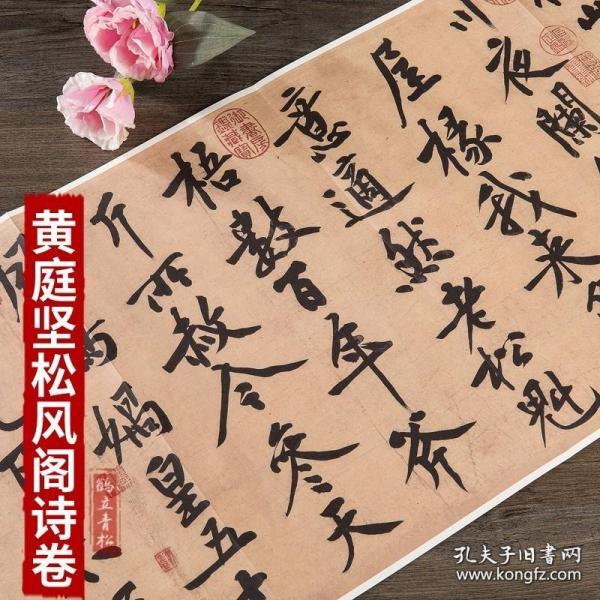 山
川夜闌
屋椽我来
意適然老松魁
梧數百年斧
斤所赦今參天
媧皇五十
黄庭坚松风阁诗卷
鹤立青松
孔夫子旧书网
www.kongfz.com